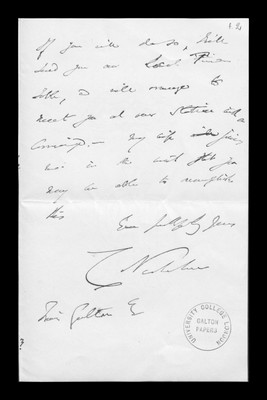 1.2)
If you will do so, I will
send you our Local Time
table, & will arrange to
meet you at our Station with a
Carriage. — My wife joins
me in the wish that you
may be able to accomplish
this
Ever faithfully yours
Galton Esq
UNIVERSITY COLLEGE LONDON
GALTON
PAPERS